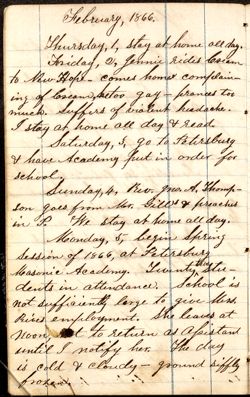 February, 1866.
Thursday, 1, stay at home all day.
Friday, 2, Jennie rides
to New Hope - comes home complain-
ing of too gay - prances too
much. Suffers of violent headache.
I stay at home all day & read.
Saturday, 3, go to Petersburg
& have Academy put in order for
school.
Sunday, 4, Rev. Jno. A. Thomp-
son goes from Mr. Gill's & preaches
in P. We stay at home all day.
Monday, 5, begin Spring
session of 1866, at Petersburg
Masonic Academy. Twenty stu-
dents in attendance. School is
not sufficiently large to give Mrs.
employment. She leaves at
noon, not to return as Assistant
until I notify her. The day
is cold & cloudy - ground stiffly
frozen.